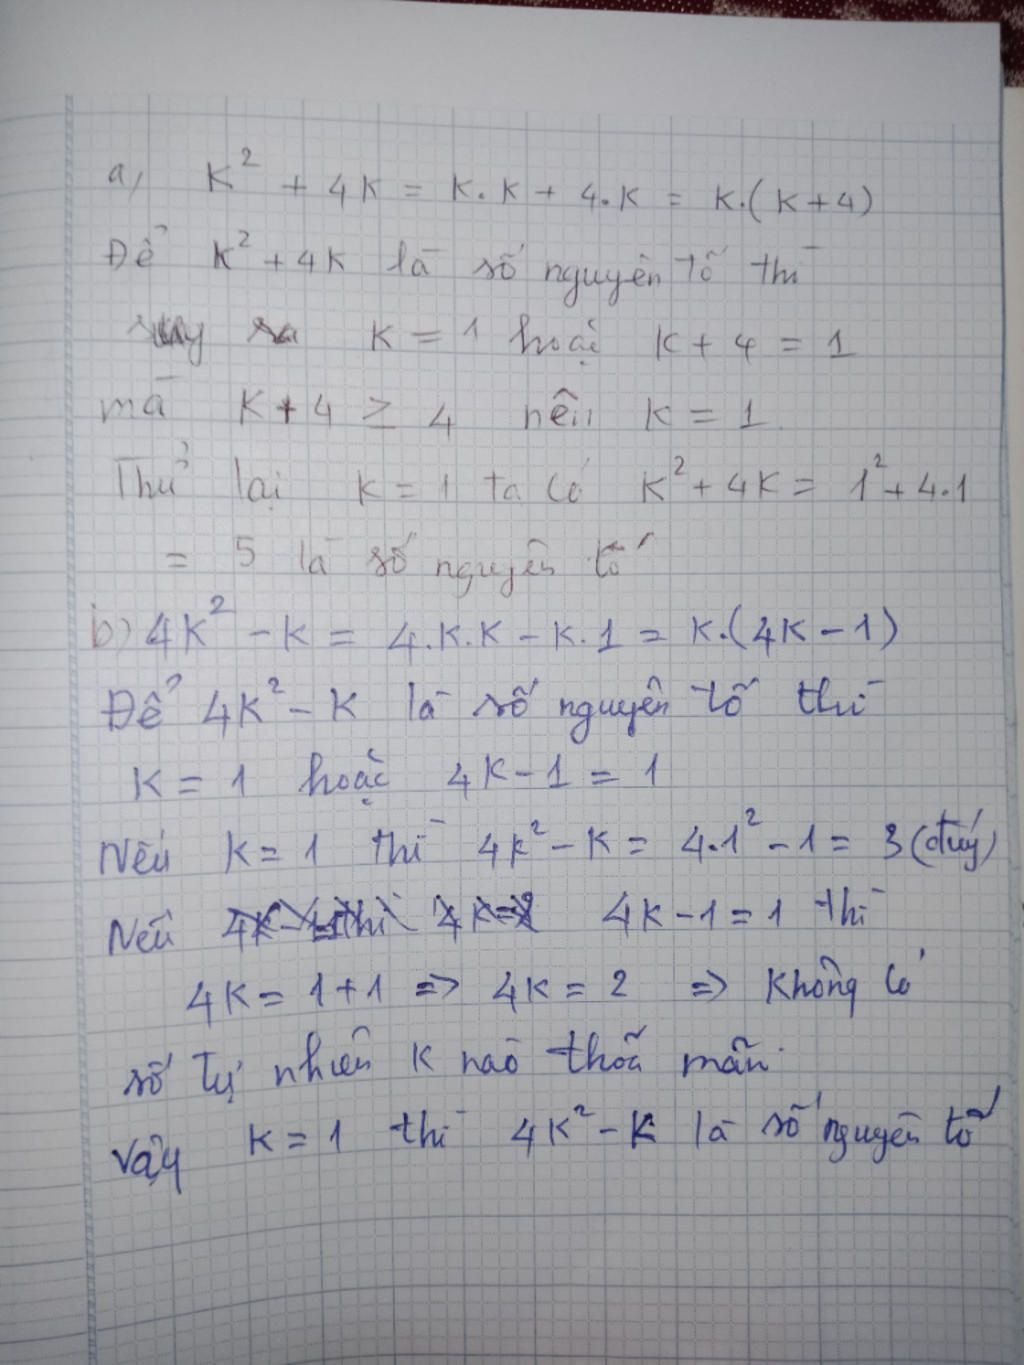 a, K² + 4K = K.K + 4.K = K.(K+4)
Để K² + 4K là số nguyên tố thì
suy ra K = 1 hoặc K + 4 = 1
mà K + 4 ≥ 4 nên K = 1.
Thử lại K = 1 ta có K² + 4K = 1² + 4.1
= 5 là số nguyên tố
b) 4K² - K = 4.K.K - K.1 = K.(4K - 1)
Để 4K² - K là số nguyên tố thì
K = 1 hoặc 4K - 1 = 1
Nếu K = 1 thì 4K² - K = 4.1² - 1 = 3 (đúng)
Nếu 4K - 1 = 1 thì
4K = 1 + 1 => 4K = 2 => Không có
số tự nhiên K nào thoã mãn.
Vậy K = 1 thì 4K² - K là số nguyên tố